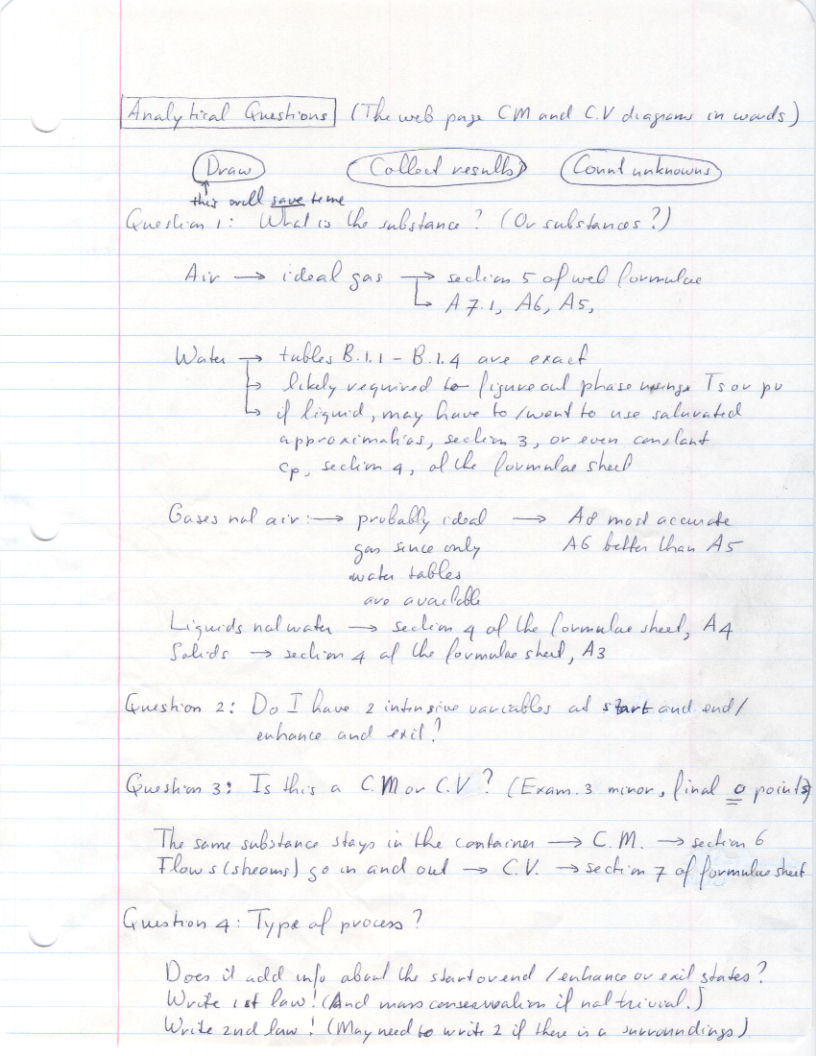 Analytical Questions (The web page CM and C.V diagrams in words)
Draw Collect results Count unknowns
this will save time
Question 1: What is the substance? (Or substances?)
Air → ideal gas → section 5 of web formulae
↳ A7.1, A6, A5,
Water → tables B.1.1 - B.1.4 are exact
↳ likely required to figure out phase using Ts or pv
↳ if liquid, may have to/want to use saturated
approximation, section 3, or even constant
cp, section 4, of the formulae sheet
Gases not air: → probably ideal → A8 most accurate
gas since only A6 better than A5
water tables
are available
Liquids not water → section 4 of the formulae sheet, A4
Solids → section 4 of the formulae sheet, A3
Question 2: Do I have 2 intensive variables at start and end/
entrance and exit?
Question 3: Is this a C.M or C.V? (Exam. 3 minor, final 0 points)
The same substance stays in the container → C.M. → section 6
Flows (streams) go in and out → C.V. → section 7 of formulae sheet
Question 4: Type of process?
Does it add info about the start or end /entrance or exit states?
Write 1st law! (And mass conservation if not trivial.)
Write 2nd law! (May need to write 2 if there is a surroundings)